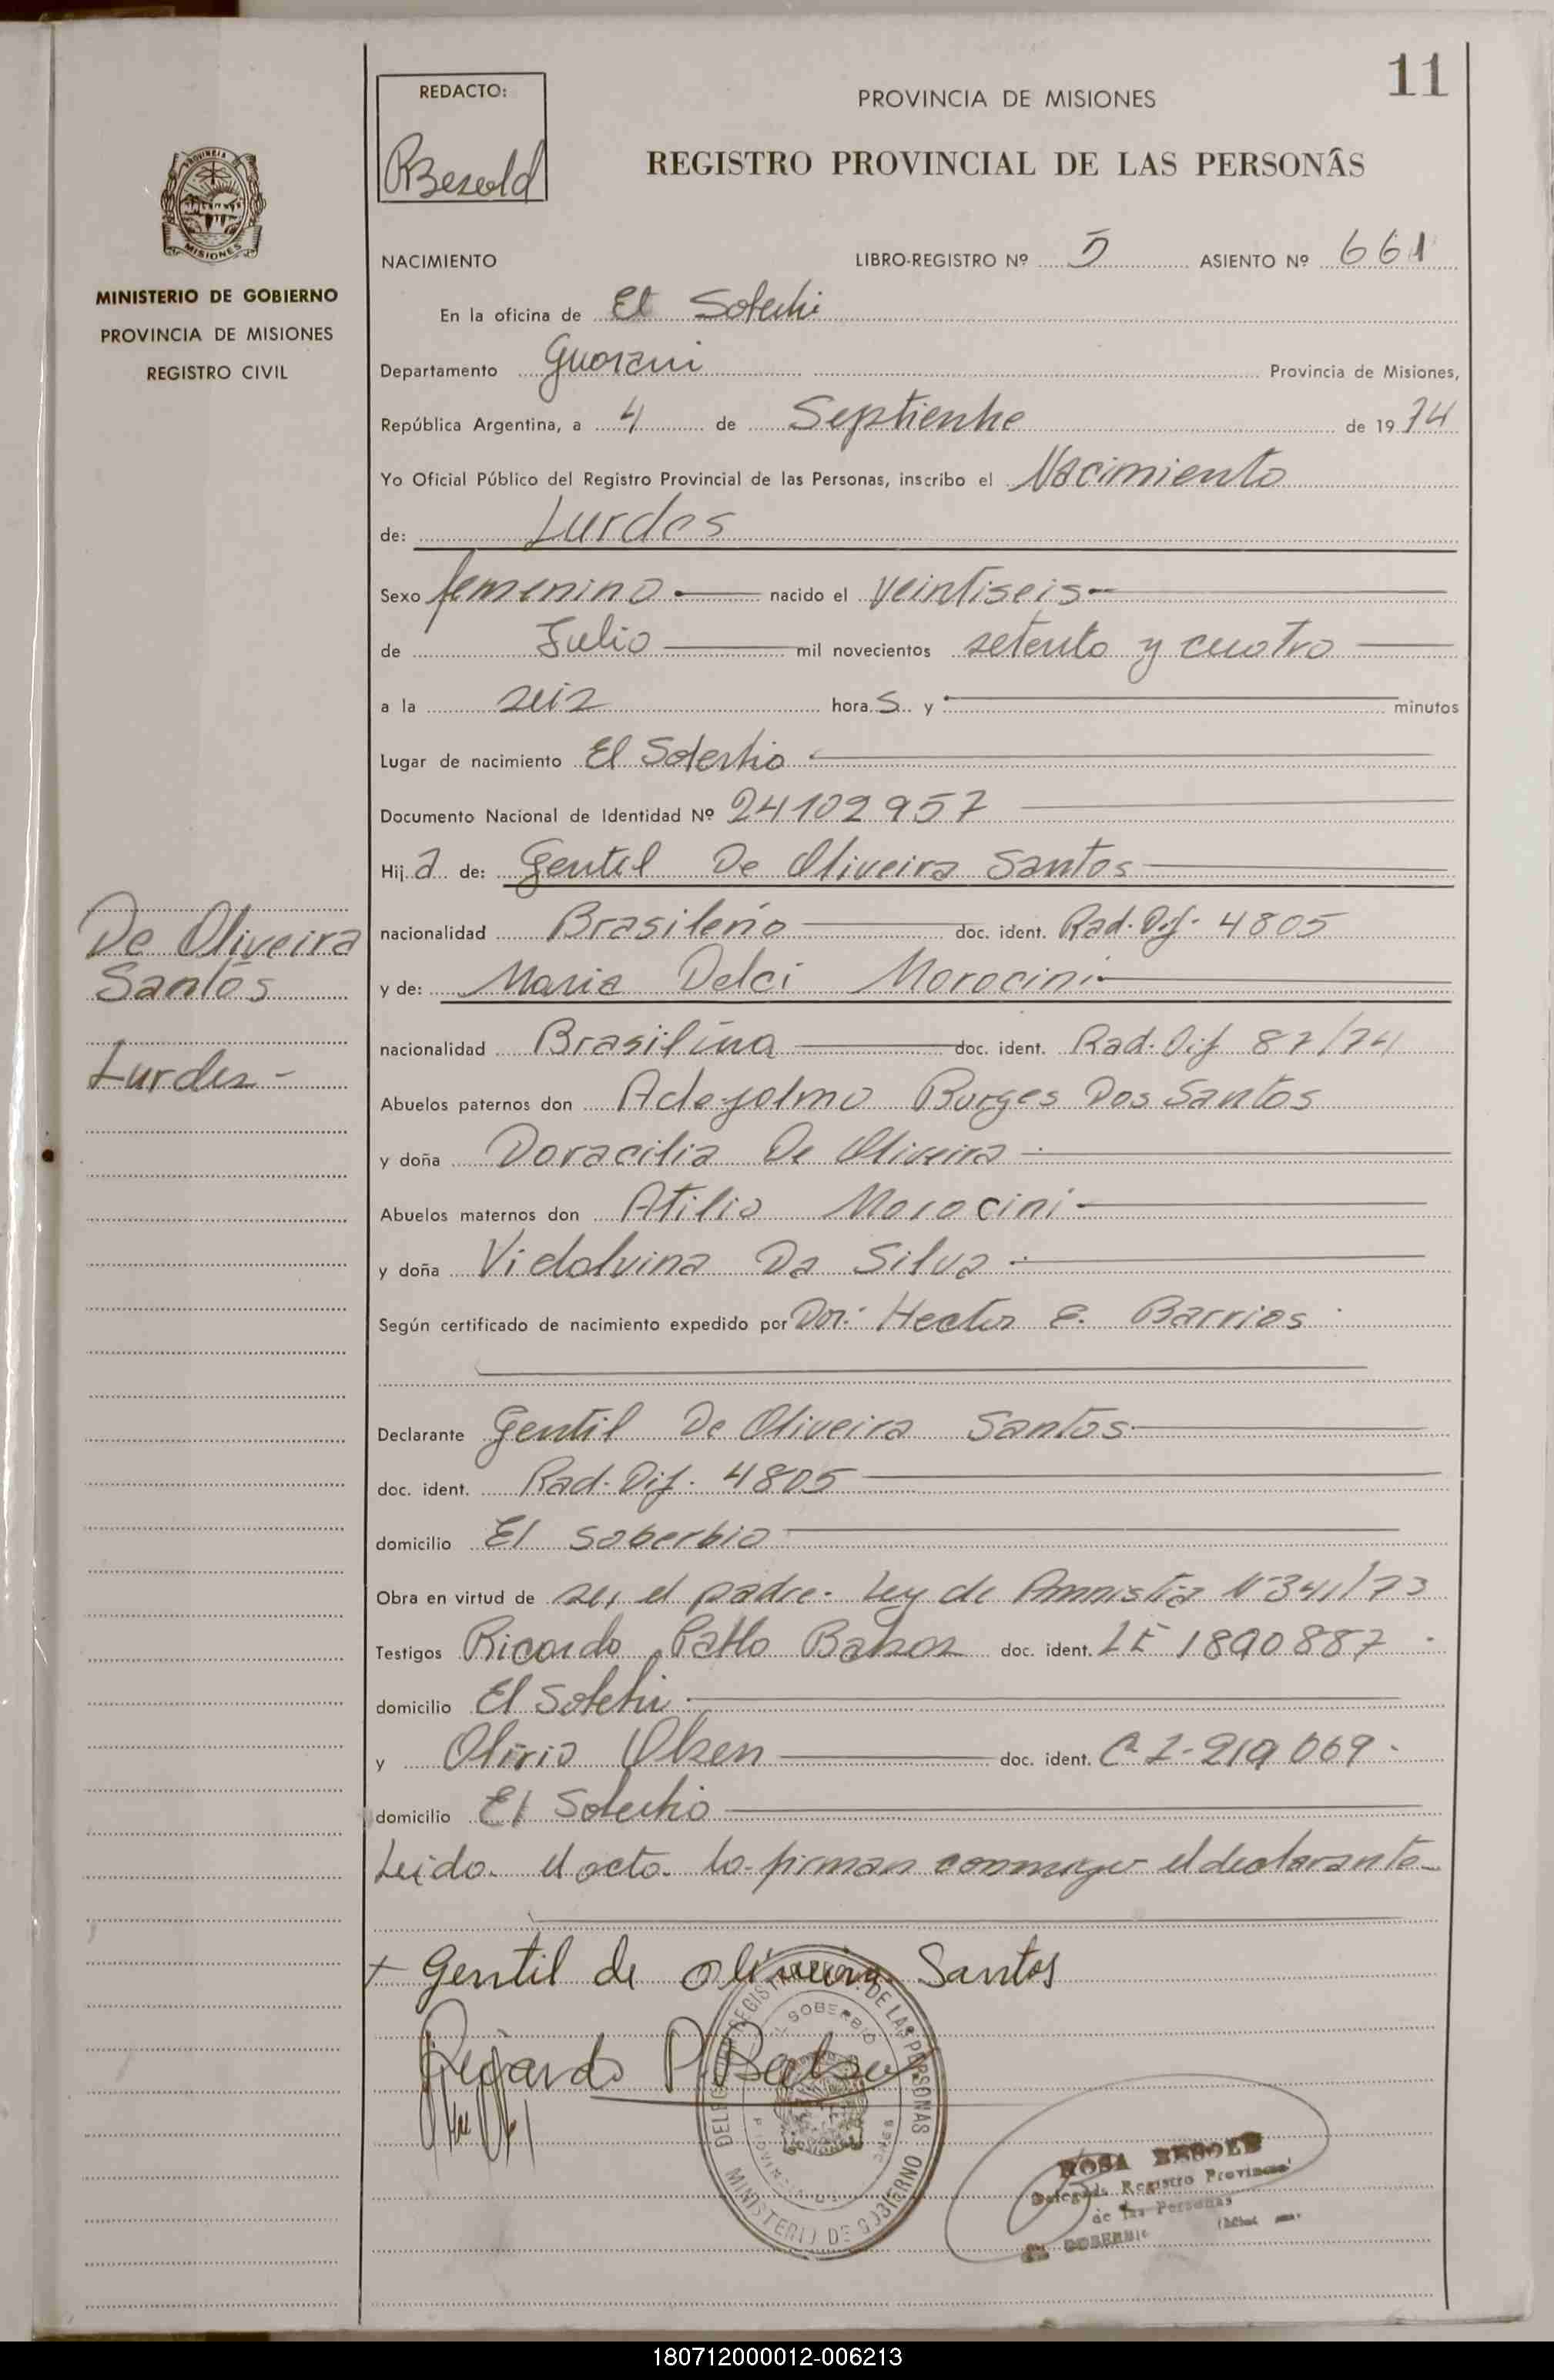 11
REDACTO:
RBesold
PROVINCIA DE MISIONES
REGISTRO PROVINCIAL DE LAS PERSONAS
MISIONES
MINISTERIO DE GOBIERNO
PROVINCIA DE MISIONES
REGISTRO CIVIL
NACIMIENTO LIBRO-REGISTRO Nº 5 ASIENTO Nº 661
En la oficina de El Soberbio
Departamento Guarani Provincia de Misiones,
República Argentina, a 4 de Septiembre de 1974
Yo Oficial Público del Registro Provincial de las Personas, inscribo el Nacimiento
de: Lurdes
Sexo femenino nacido el veintiseis
de Julio mil novecientos setenta y cuatro
a la seis horas y minutos
Lugar de nacimiento El Soberbio
Documento Nacional de Identidad Nº 24102957
Hija de: Gentil De Oliveira Santos
De Oliveira
Santos
Lurdes -
nacionalidad Brasileño doc. ident. Rad. Dif. 4805
y de: Maria Delci Morocini
nacionalidad Brasilina doc. ident. Rad. Dif 87/74
Abuelos paternos don Borges Dos Santos
y doña Doracilia De Oliveira
Abuelos maternos don Atilio Morocini
y doña Vidalvina Da Silva
Según certificado de nacimiento expedido por Dor. Hector E. Barrios
Declarante Gentil De Oliveira Santos
doc. ident. Rad. Dif. 4805
domicilio El Soberbio
Obra en virtud de ser el padre. Ley de Amnistia Nº 341/73
Testigos Ricardo Pablo doc. ident. LE 1890887
domicilio El Soberbio
y Olirio Olsen doc. ident. C I - 219069
domicilio El Soberbio
Leido el acta lo firman conmigo el declarante
+ Gentil de Oliveira Santos
Ricardo P.
DELEGACION REGISTRO DE LAS PERSONAS
EL SOBERBIO
MINISTERIO DE GOBIERNO
ROSA BESOLD
Delegada Registro Provincial
de las Personas
EL SOBERBIO
180712000012-006213